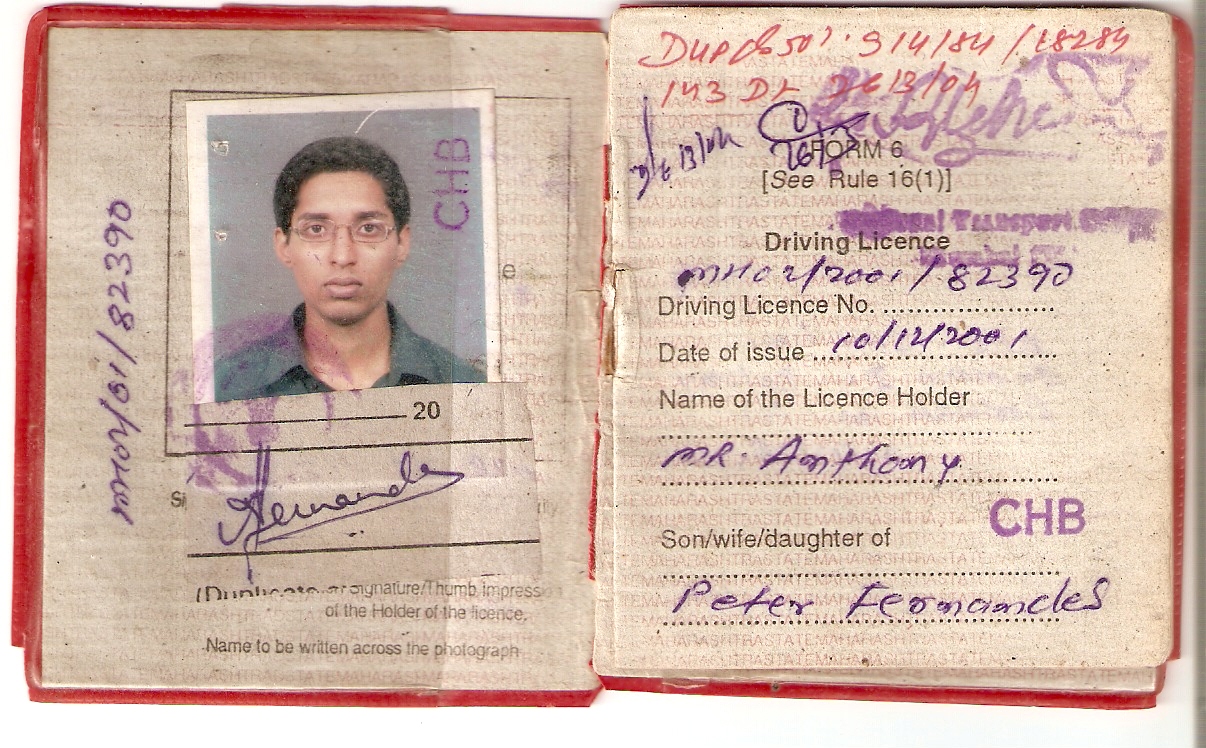 CHB
MH04/01/82390
e
20
(Duplicate or signature/Thumb impress
of the Holder of the licence,
Name to be written across the photograph
143 DL 26/3/04
FORM 6
[See Rule 16(1)]
Transport
Driving Licence
MH02/2001/82390
Driving Licence No.
Date of issue 10/12/2001
Name of the Licence Holder
MR. Anthony
CHB
Son/wife/daughter of
Peter Fernandes